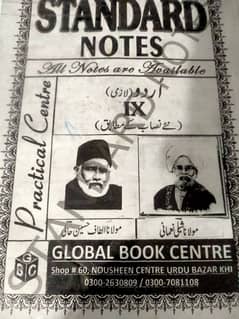 STANDARD
NOTES
All Notes are Available
Practical Centre
اردو (لازمی)
IX
(نئے نصاب کے مطابق)
مولانا الطاف حسین حالی
مولانا شبلی نعمانی
GBC
GLOBAL BOOK CENTRE
Shop # 60, NOUSHEEN CENTRE URDU BAZAR KHI
0300-2630809 / 0300-7081108